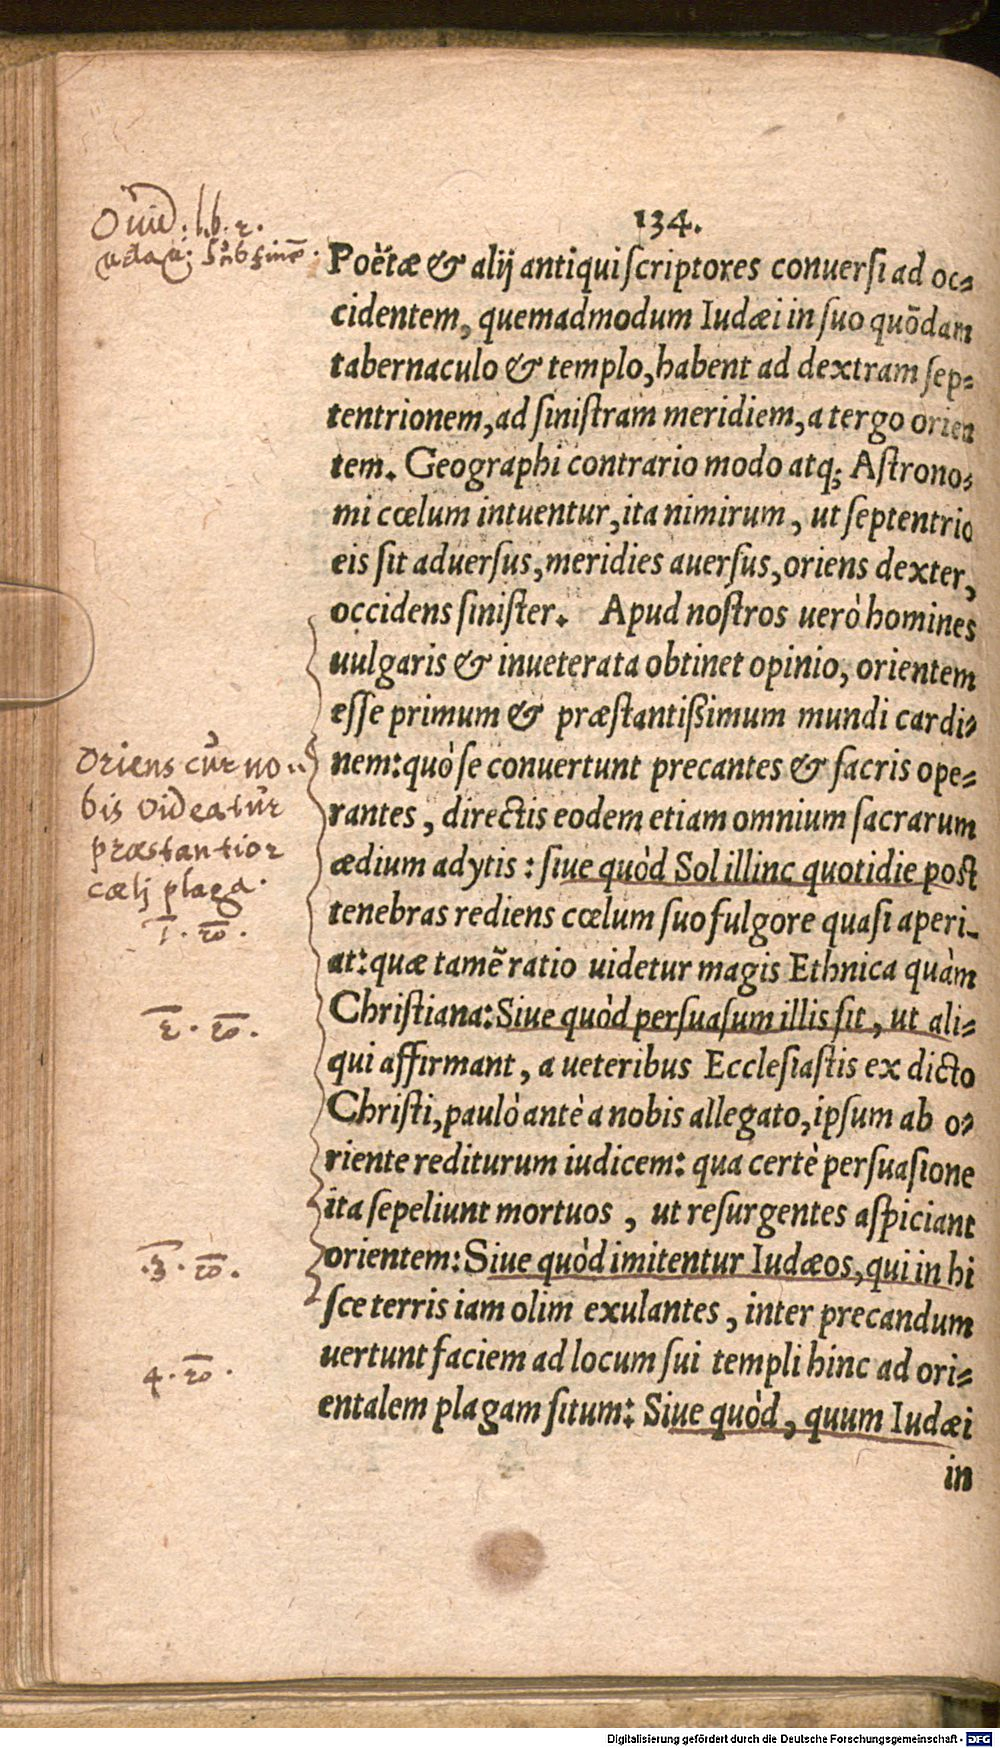 134.
Ouid. lib. 2.
sub finē.
Poëtæ & alij antiqui ſcriptores conuerſi ad oc⸗
cidentem, quemadmodum Iudæi in ſuo quōdam
tabernaculo & templo, habent ad dextram ſep⸗
tentrionem, ad ſiniſtram meridiem, a tergo orien
tem. Geographi contrario modo atq; Aſtrono⸗
mi cœlum intuentur, ita nimirum, ut ſeptentrio
eis ſit aduerſus, meridies auerſus, oriens dexter,
occidens ſiniſter. Apud noſtros uerò homines
uulgaris & inueterata obtinet opinio, orientem
eſſe primum & præſtantißimum mundi cardi⸗
nem: quò ſe conuertunt precantes & ſacris ope⸗
rantes, directis eodem etiam omnium ſacrarum
ædium adytis: ſiue quòd Sol illinc quotidie poſt
tenebras rediens cœlum ſuo fulgore quaſi aperi-
at: quæ tamē ratio uidetur magis Ethnica quàm
Chriſtiana: Siue quòd perſuaſum illis ſit, ut ali⸗
qui affirmant, a ueteribus Eccleſiaſtis ex dicto
Chriſti, paulò antè a nobis allegato, ipſum ab o⸗
riente rediturum iudicem: qua certè perſuaſione
ita ſepeliunt mortuos, ut reſurgentes aſpiciant
orientem: Siue quòd imitentur Iudæos, qui in hi
ſce terris iam olim exulantes, inter precandum
uertunt faciem ad locum ſui templi hinc ad ori⸗
entalem plagam ſitum: Siue quòd, quum Iudæi
in
Oriens cur no
bis videatur
præstantior
cælj plaga.
1. rō.
2. rō.
3. rō.
4. rō.
Digitalisierung gefördert durch die Deutsche Forschungsgemeinschaft - DFG